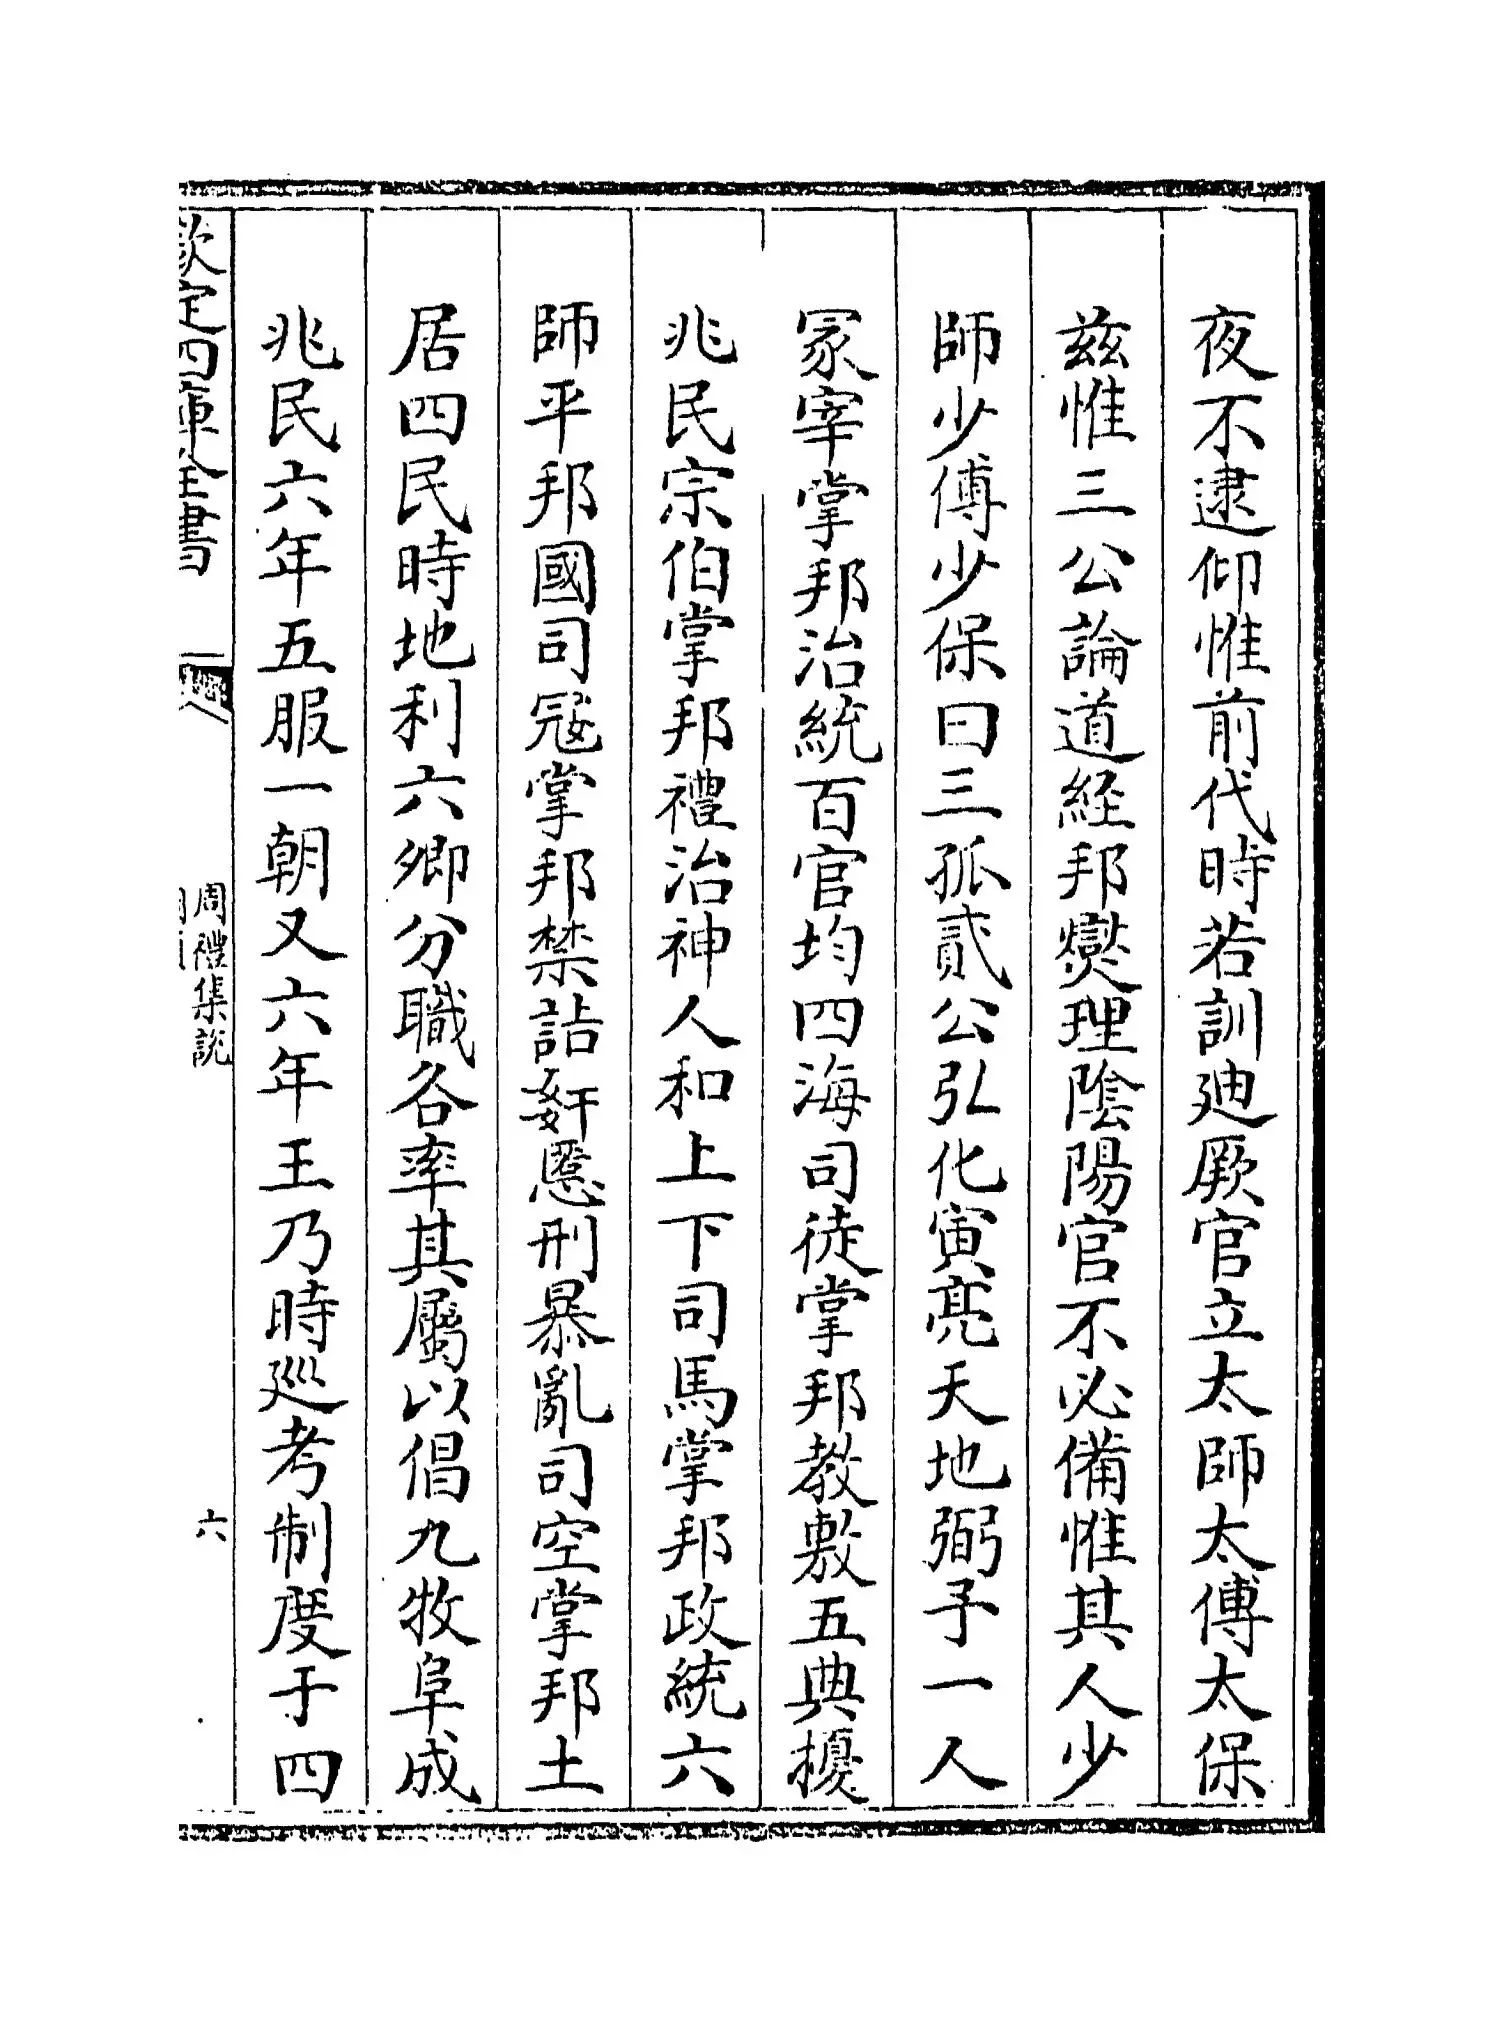 夜不逮仰惟前代時若訓廸厥官立太師太傅太保
兹惟三公論道經邦爕理隂陽官不必備惟其人少
師少傅少保曰三孤貳公弘化寅亮天地弼予一人
冡宰掌邦治統百官均四海司徒掌邦教敷五典擾
兆民宗伯掌邦禮治神人和上下司馬掌邦政統六
師平邦國司冦掌邦禁詰姧慝刑暴亂司空掌邦土
居四民時地利六卿分職各率其屬以倡九牧阜成
兆民六年五服一朝又六年王乃時廵考制度于四
欽定四庫全書
周禮集說
六